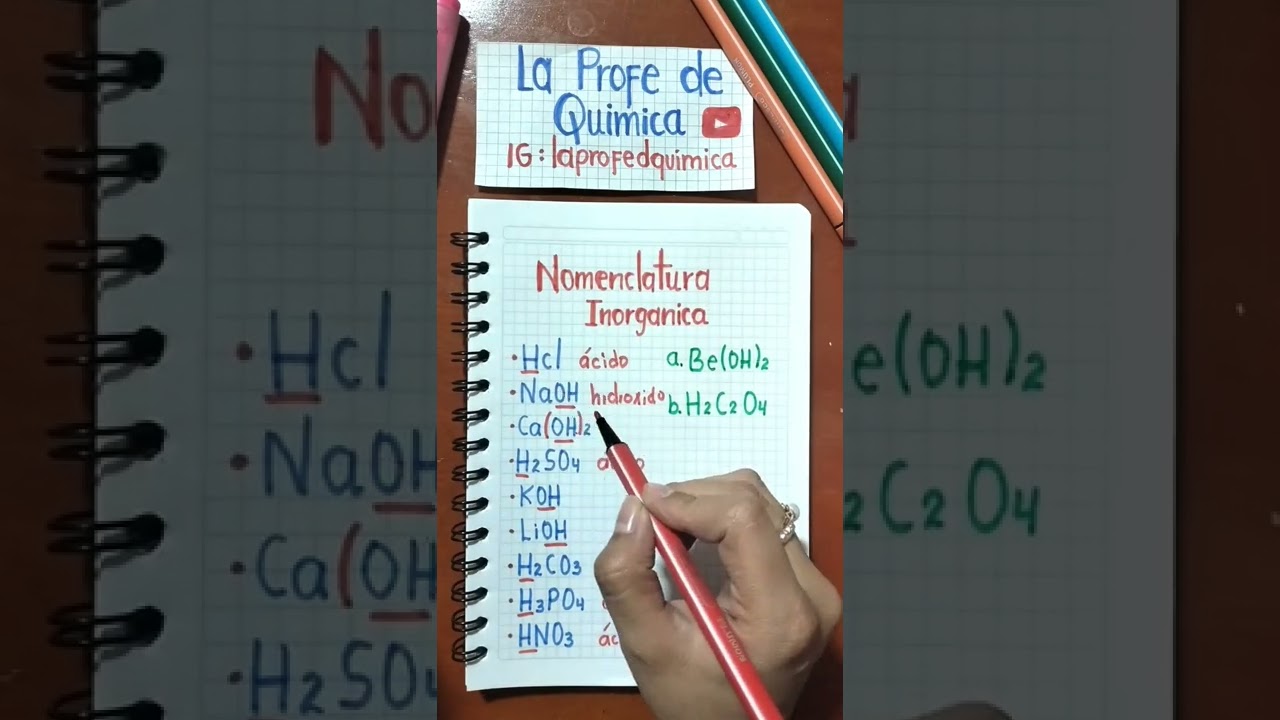 La Profe de
Quimica
IG: laprofedquimica
Nomenclatura
Inorganica
• Hcl ácido
• NaOH hidroxido
• Ca(OH)2
• H2SO4
• KOH
• LiOH
• H2CO3
• H3PO4
• HNO3
a. Be(OH)2
b. H2C2O4